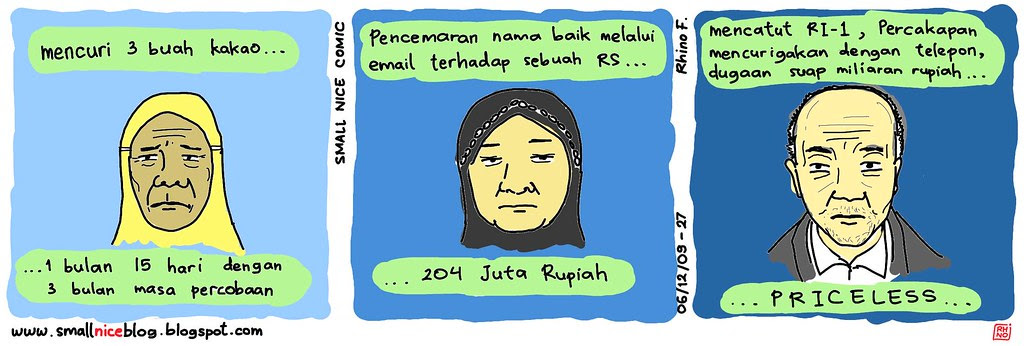 mencuri 3 buah kakao...
...1 bulan 15 hari dengan
3 bulan masa percobaan
SMALL NICE COMIC
Pencemaran nama baik melalui
email terhadap sebuah RS...
... 204 Juta Rupiah
Rhino F.
06/12/09-27
mencatut RI-1, Percakapan
mencurigakan dengan telepon,
dugaan suap miliaran rupiah...
... PRICELESS...
www.smallniceblog.blogspot.com
RH
NO